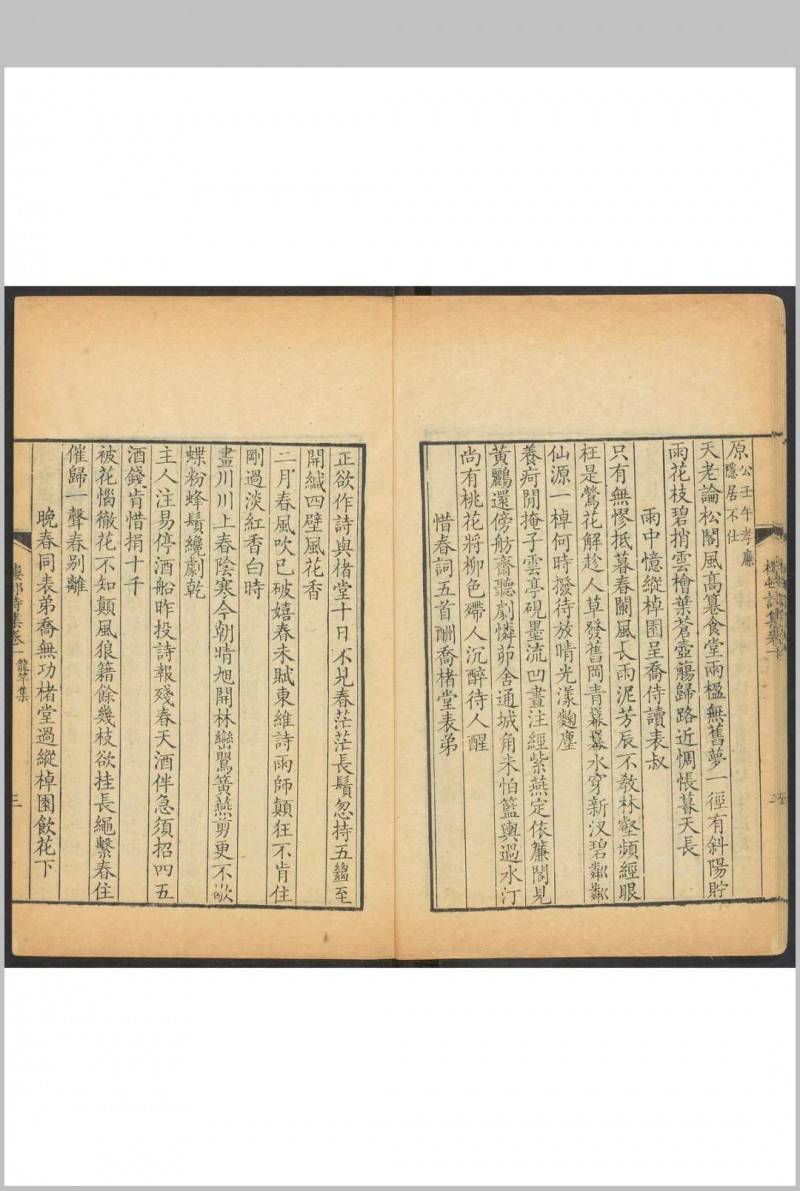 原公壬午孝廉
隱居不仕
天老論松閣風高篡食堂兩楹無舊夢一徑有斜陽貯
雨花枝碧捎雲檜葉蒼壺觴歸路近惆悵暮天長
雨中憶縱棹園呈喬侍讀表叔
只有無憀抵暮春闌風長雨泥芳辰不教林壑頻經眼
枉是鶯花解趁人草發舊岡青羃羃水穿新汊碧粼粼
仙源一棹何時撥待放晴光漾麴塵
養疴閒掩子雲亭硯墨流凹晝注經紫燕定依簾閤見
黃鸝還傍舫齋聽劇憐茆舍通城角未怕籃輿過水汀
尚有桃花將柳色殢人沉醉待人醒
惜春詞五首酬喬楮堂表弟
正欲作詩與楮堂十日不見春茫茫長鬚忽持五縐至
開緘四壁風花香
二月春風吹已破嬉春未賦東維詩雨師顛狂不肯住
剛過淡紅香白時
畫川川上春陰寒今朝晴旭開林巒鸎簧燕剪更不歇
蝶粉蜂鬚纔劇乾
主人注易停酒船昨投詩報殘春天酒伴急須招四五
酒錢肯惜捐十千
被花惱徹花不知顛風狼籍餘幾枝欲挂長繩繫春住
催歸一聲春別離
晚春同表弟喬無功楮堂過縱棹園飲花下
詩集卷一 龍竿集 三